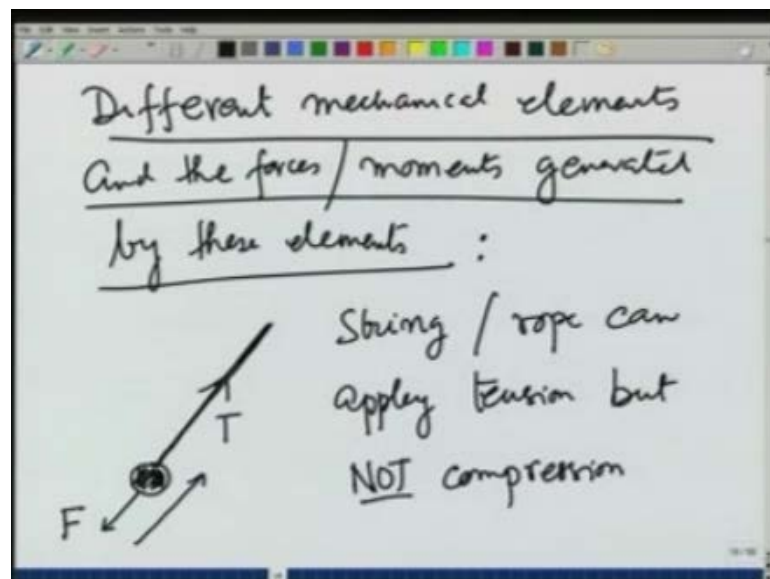 Different mechanical elements
And the forces / moments generated
by these elements :
String / rope can
apply tension but
NOT compression
T
F